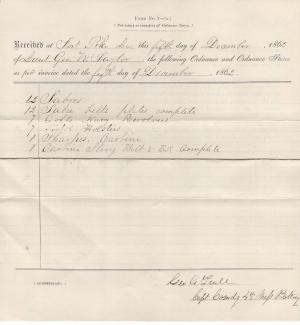 Form No. 7—(a.)
Received at Fort Pike La this fifth day of December, 1862
of Lieut Geo W Taylor, the following Ordnance and Ordnance Stores
as per invoice dated the fifth day of December, 1862.
12 Sabres
12 Sabre Belts plates complete
7 Colts Navy Revolvers
7 Holsters
1 Sharpes Carbine
1 Carbine Sling Belt & Complete
(IN DUPLICATE.)
Geo G Trull
Capt Comdg 4th Mass Battery